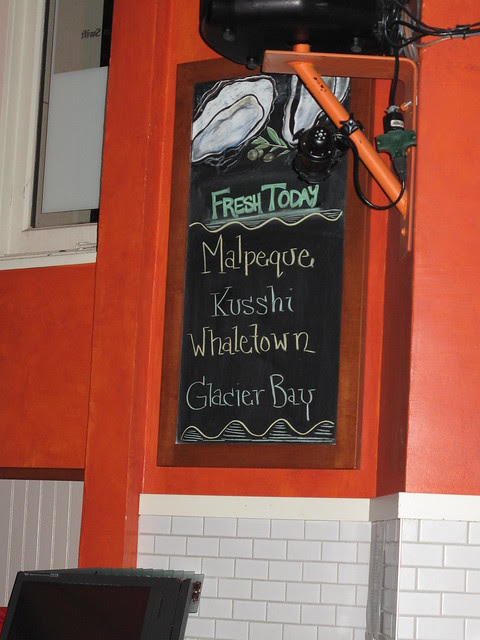 FRESH TODAY
Malpeque
Kusshi
Whaletown
Glacier Bay